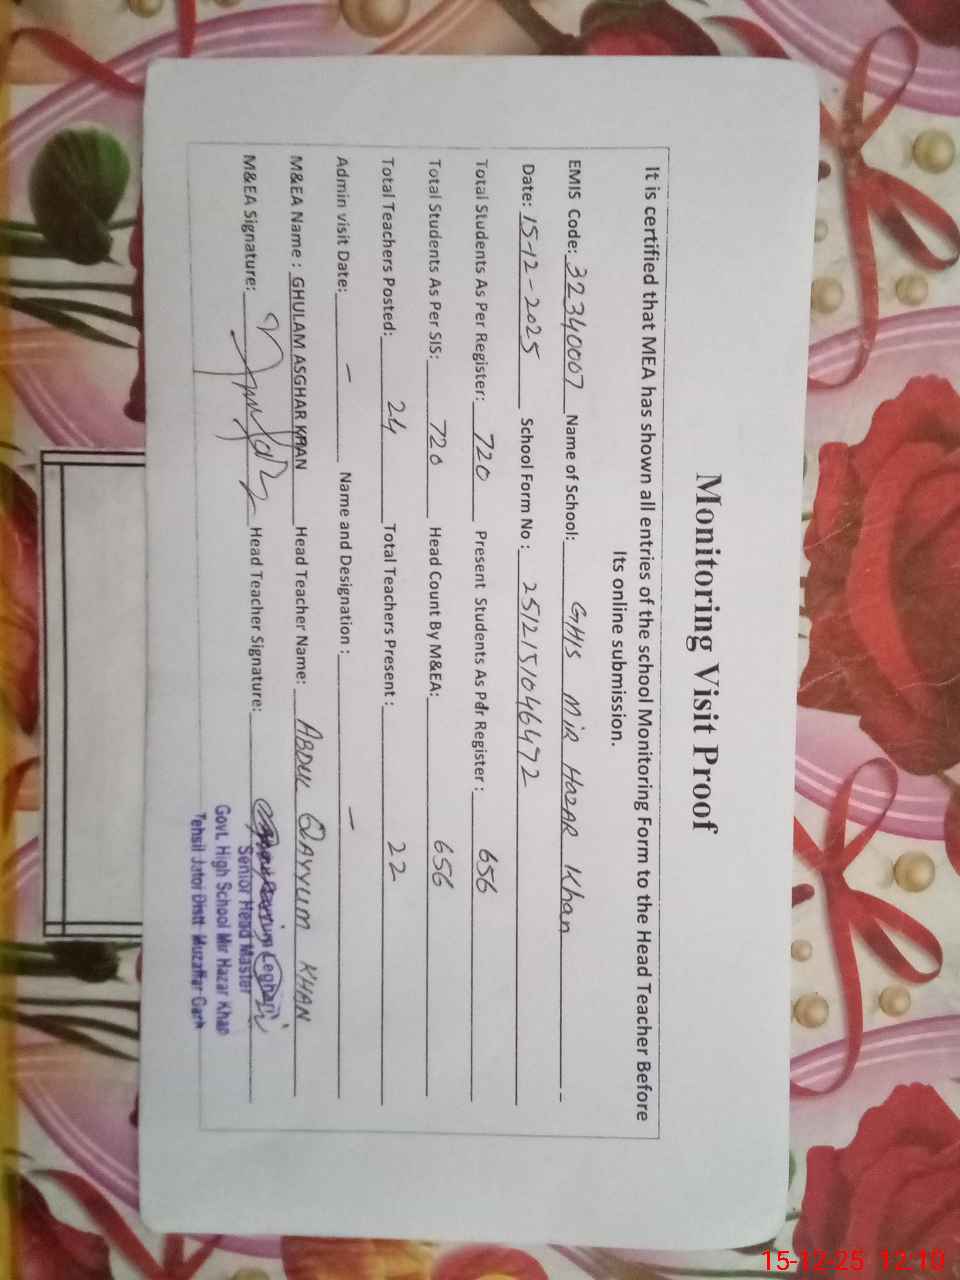 Monitoring Visit Proof
It is certified that MEA has shown all entries of the school Monitoring Form to the Head Teacher Before
Its online submission.
EMIS Code: 32340007 Name of School: GHS MIR HAZAR Khan
Date: 15-12-2025 School Form No: 2512151046472
Total Students As Per Register: 720 Present Students As Pdr Register: 656
Total Students As Per SIS: 720 Head Count By M&EA: 656
Total Teachers Posted: 24 Total Teachers Present: 22
Admin visit Date: - Name and Designation: -
M&EA Name: GHULAM ASGHAR KHAN Head Teacher Name: ABDUL QAYYUM KHAN
M&EA Signature: Head Teacher Signature:
Leghari
Senior Head Master
Govt. High School Mir Hazar Khan
Tehsil Jatoi Distt Muzaffar Garh
15-12-25 12:10